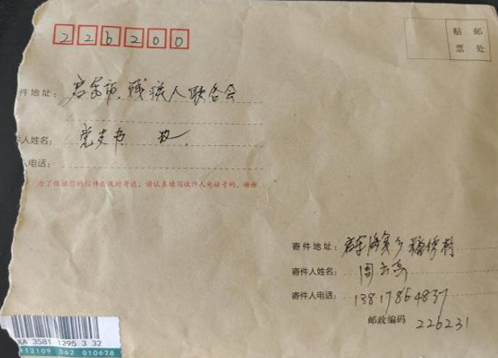 226200
贴 邮
票 处
件地址：启东市残疾人联合会
人姓名：党支书 收
人电话：
为了保证您的信件迅及时寄达，请认真填写收件人电话号码，谢谢
寄件地址：启东海复乡
寄件人姓名：周
寄件人电话：13817864837
邮政编码 226231
XA 3581 1295 3 32
112109 062 010628